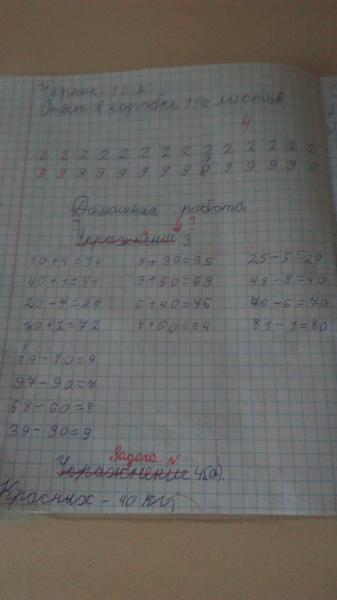 Черных - 10 л.
Ответ: в коробке 110 листов
4
2 2 2 2 2 2 2 2 2 2 2 2 2 2
9 9 9 9 9 9 9 9 9 9 9 9 9 9
Домашняя работа.
?
Упражнение 3
10+4=14 5+30=35 25-5=20
40+1=41 3+50=53 48-8=40
20+7=27 6+40=46 76-6=70
70+2=72 4+60=64 81-1=80
19-10=9
97-90=7
68-60=8
39-30=9
Задача №
Упражнение 4(а).
Красных - 40 кг